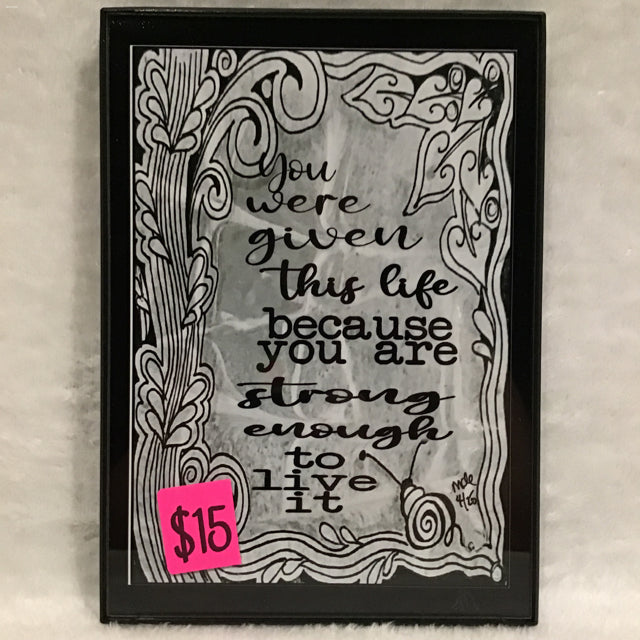 You
were
given
this life
because
you are
strong
enough
to
live
it
4/20
$15